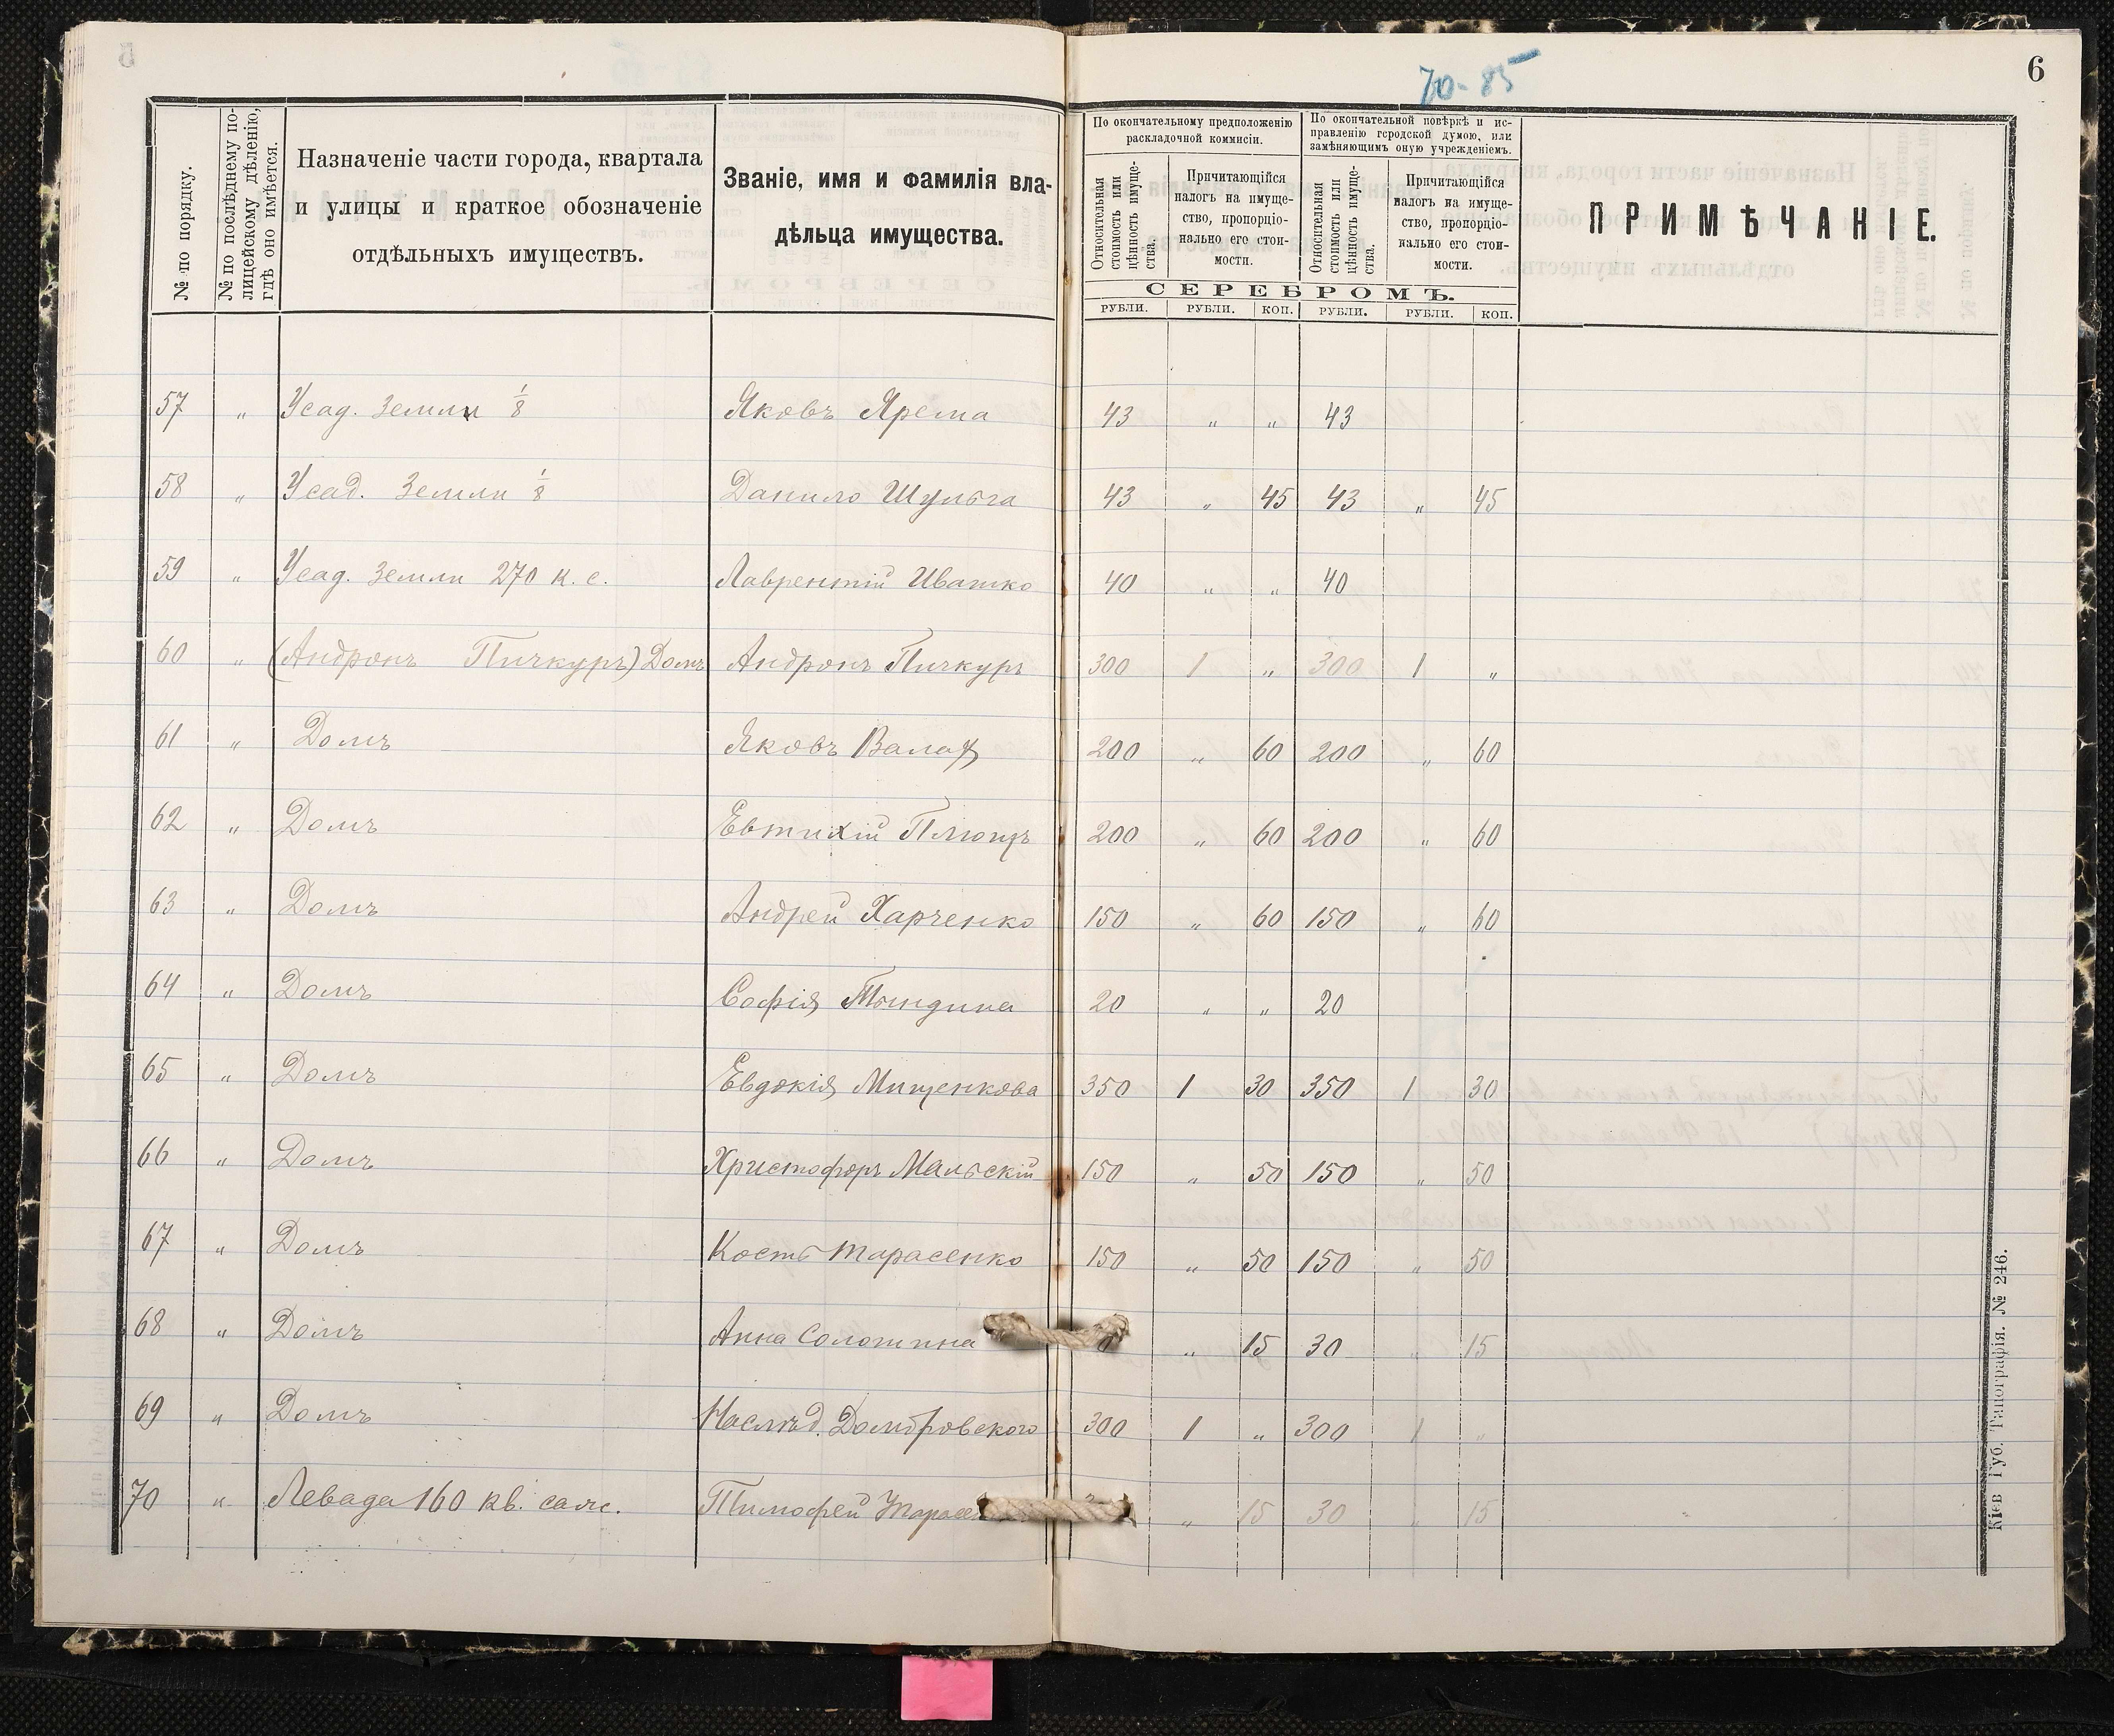 6
70-85
№ по порядку.
№ по послѣднему по-
лицейскому дѣленію,
гдѣ оно имѣется.
Назначеніе части города, квартала
и улицы и краткое обозначеніе
отдѣльныхъ имуществъ.
Званіе, имя и фамилія вла-
дѣльца имущества.
По окончательному предположенію
раскладочной коммисіи.
По окончательной повѣркѣ и ис-
правленію городской думою, или
замѣняющимъ оную учрежденіемъ.
Относительная
стоимость или
цѣнность имуще-
ства.
Причитающійся
налогъ на имуще-
ство, пропорціо-
нально его стои-
мости.
Относительная
стоимость или
цѣнность имуще-
ства.
Причитающійся
налогъ на имуще-
ство, пропорціо-
нально его стои-
мости.
ПРИМѢЧАНІЕ.
СЕРЕБРОМЪ.
РУБЛИ. РУБЛИ. КОП. РУБЛИ. РУБЛИ. КОП.
57 " Усад. Земли 1/8 Яковъ Ярема 43 " " 43
58 " Усад. Земли 1/8 Данило Шульга 43 " 45 43 " 45
59 " Усад. Земли 270 к. с. Лаврентій Ивашко 40 " " 40
60 " (Андронъ Пичкуръ) Домъ Андронъ Пичкуръ 300 1 " 300 1 "
61 " Домъ Яковъ 200 " 60 200 " 60
62 " Домъ Евтихій Плющъ 200 " 60 200 " 60
63 " Домъ Андрей Харченко 150 " 60 150 " 60
64 " Домъ Софія 20 " " 20
65 " Домъ Евдокія Мищенкова 350 1 30 350 1 30
66 " Домъ Христофоръ Мальскій 150 " 50 150 " 50
67 " Домъ Кость Тарасенко 150 " 50 150 " 50
68 " Домъ Анна Солотина " 15 30 " 15
69 " Домъ Наслѣд. Домбровского 300 1 " 300 1 "
70 " Левада 160 кв. саж. Тимофей " 15 30 " 15
Кіев Губ. Типографія. № 246.